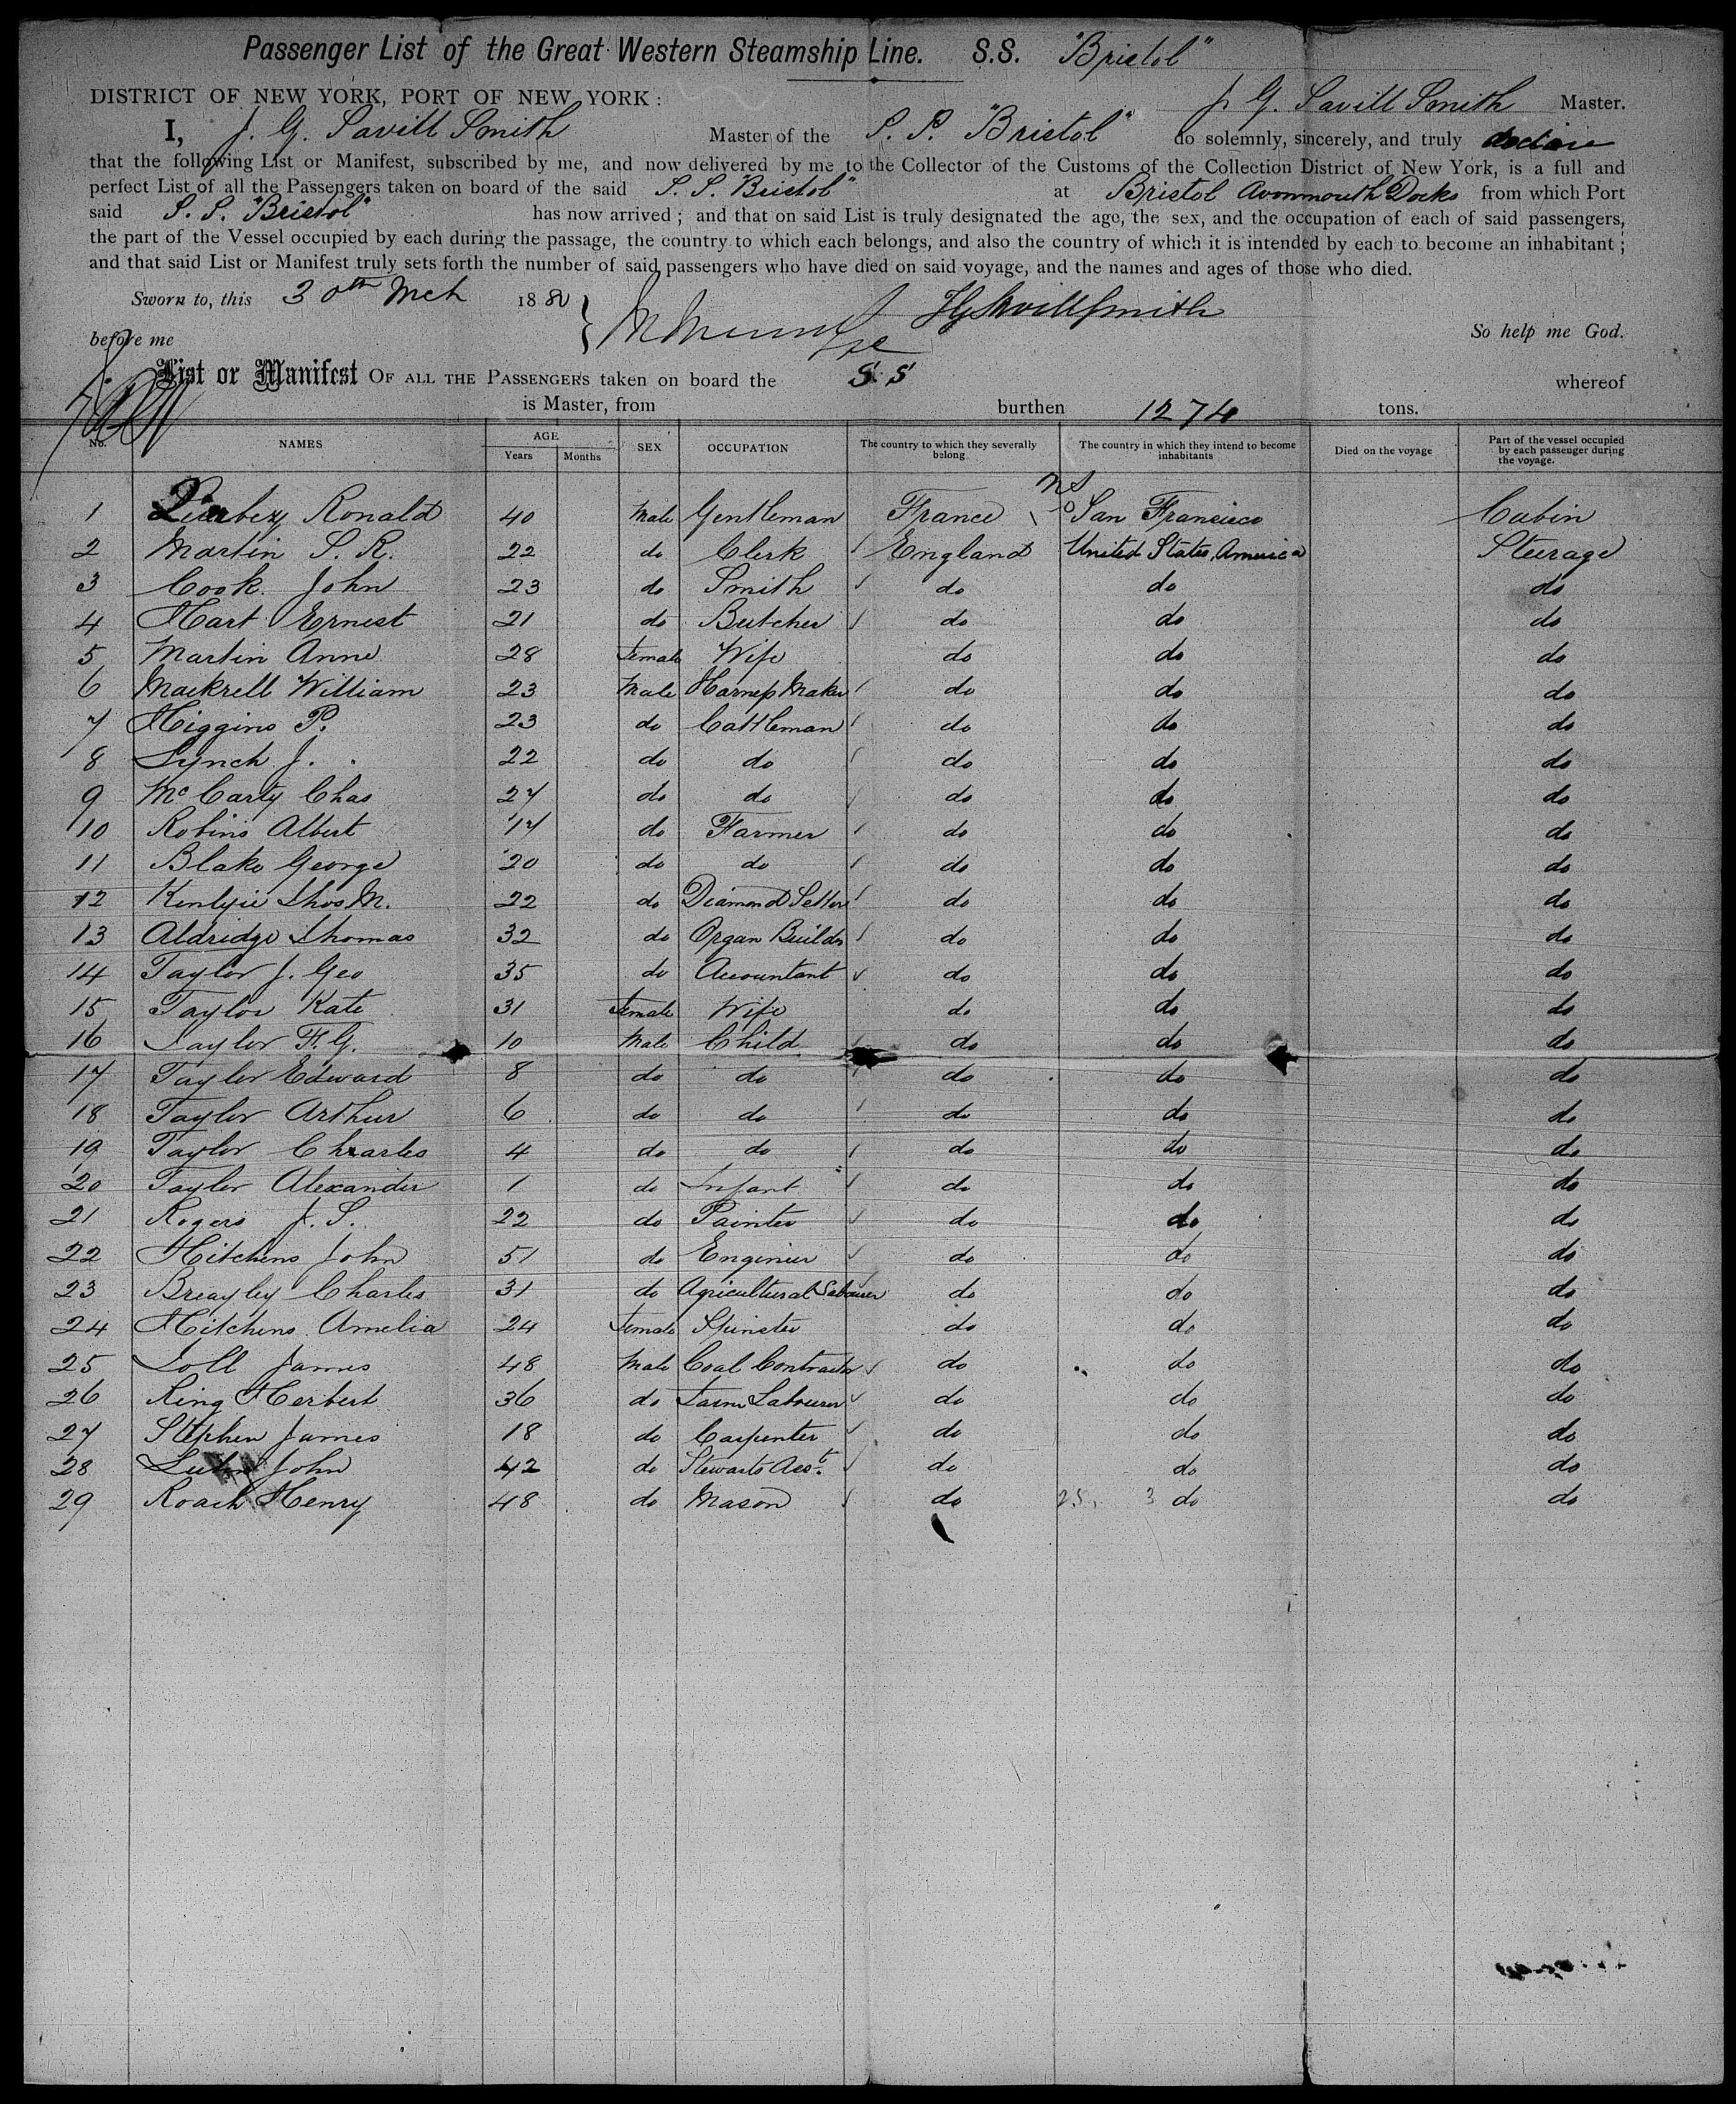 Passenger List of the Great Western Steamship Line. S.S. "Bristol"
DISTRICT OF NEW YORK, PORT OF NEW YORK: J. G. Savill Smith Master.
I, J. G. Savill Smith Master of the S. S. "Bristol" do solemnly, sincerely, and truly declare
that the following List or Manifest, subscribed by me, and now delivered by me to the Collector of the Customs of the Collection District of New York, is a full and
perfect List of all the Passengers taken on board of the said S. S. "Bristol" at Bristol Avonmouth Docks from which Port
said S. S. "Bristol" has now arrived; and that on said List is truly designated the age, the sex, and the occupation of each of said passengers,
the part of the Vessel occupied by each during the passage, the country to which each belongs, and also the country of which it is intended by each to become an inhabitant;
and that said List or Manifest truly sets forth the number of said passengers who have died on said voyage, and the names and ages of those who died.
Sworn to, this 30th Mch 188 JG Savill Smith
before me So help me God.
List or Manifest OF ALL THE PASSENGERS taken on board the S.S whereof
is Master, from burthen 1274 tons.
No. NAMES AGE Years Months SEX OCCUPATION The country to which they severally belong The country in which they intend to become inhabitants Died on the voyage Part of the vessel occupied by each passenger during the voyage.
1 Ronald 40 Male Gentleman France San Francisco Cabin
2 Martin S. R. 22 do Clerk England United States America Steerage
3 Cook John 23 do Smith do do do
4 Hart Ernest 21 do Butcher do do do
5 Martin Anne 28 Female Wife do do do
6 Mackrell William 23 Male Harness Maker do do do
7 Higgins P. 23 do Cattleman do do do
8 Lynch J. 22 do do do do do
9 McCarty Chas 27 do do do do do
10 Robins Albert 17 do Farmer do do do
11 Blake George 20 do do do do do
12 Thos M. 22 do Diamond Setter do do do
13 Aldridge Thomas 32 do Organ Builder do do do
14 Taylor J. Geo 35 do Accountant do do do
15 Taylor Kate 31 Female Wife do do do
16 Taylor F. G. 10 Male Child do do do
17 Taylor Edward 8 do do do do do
18 Taylor Arthur 6 do do do do do
19 Taylor Charles 4 do do do do do
20 Taylor Alexander 1 do Infant do do do
21 Rogers J. S. 22 do Painter do do do
22 Hitchens John 51 do Engineer do do do
23 Breayley Charles 31 do Agricultural Labourer do do do
24 Hitchens Amelia 24 Female Spinster do do do
25 James 48 Male Coal Contractor do do do
26 King Herbert 36 do Farm Labourer do do do
27 Stephen James 18 do Carpenter do do do
28 John 42 do Stewarts Asst. do do do
29 Roach Henry 48 do Mason do do do